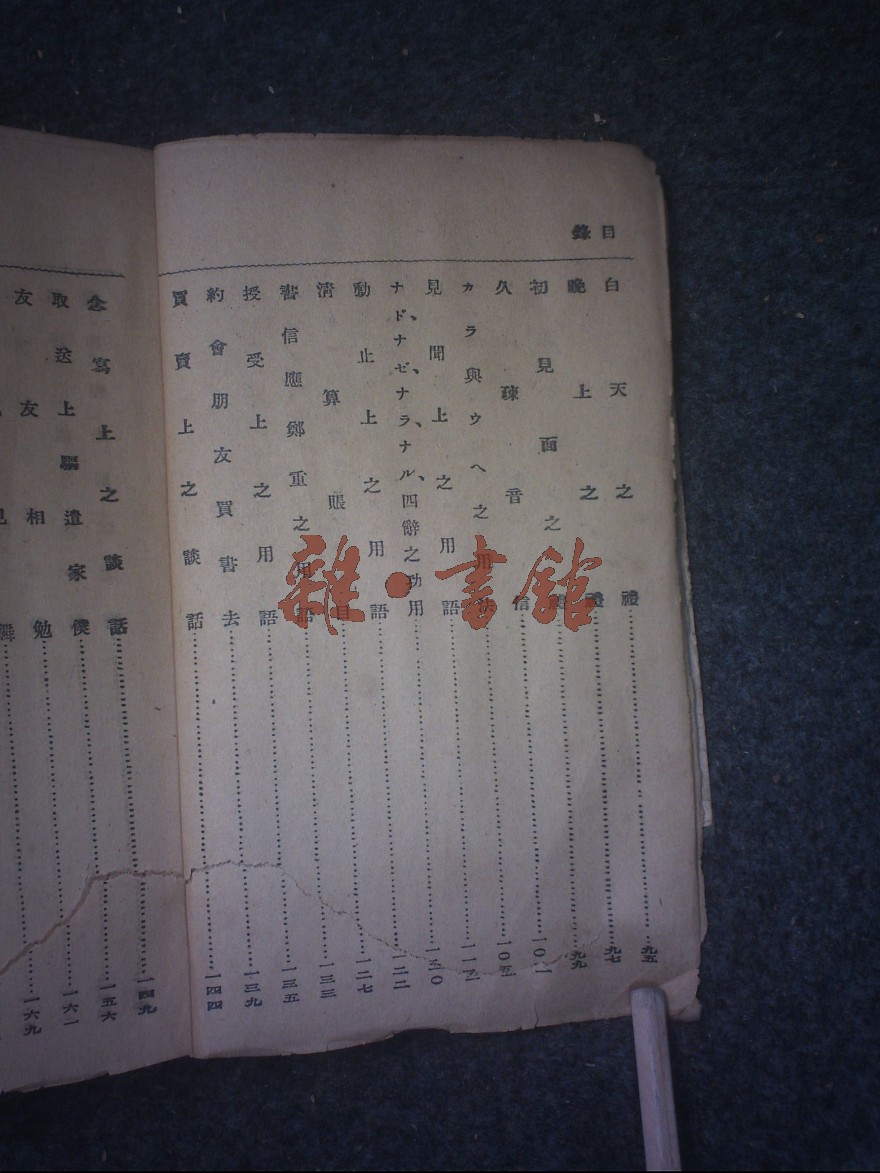 目錄
白天之禮……九五
晚上之禮……九七
初見面之禮……九九
久疎音信……一〇二
カラ與ウヘ之用法……一〇五
見聞上之用語……一一五
ナド、ナゼ、ナラ、ナル、四辭之功用……一二〇
動止上之用語……一二二
清算賬目……一二七
書信應鄭重之用語……一三三
授受上之用語……一三五
約會朋友買書去……一三九
買賣上之談話……一四四
念寫上之談話……一四九
取送上驅遣家僕……一五六
友相勉……一六一
一六九
雜·書館